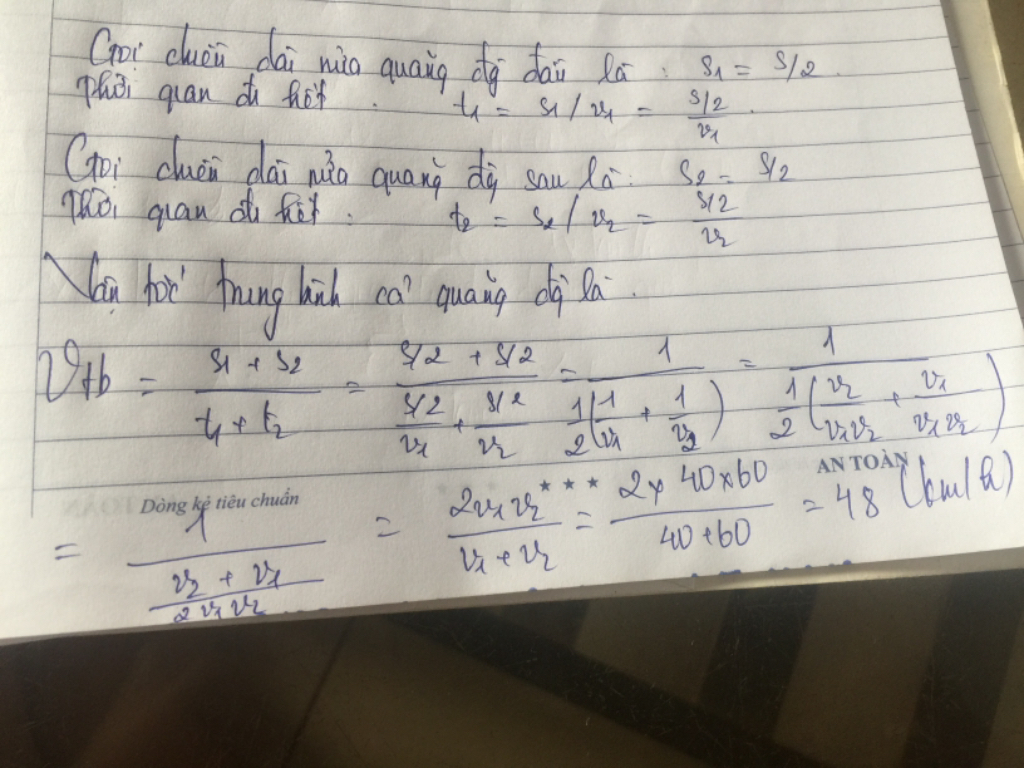 Gọi chiều dài nửa quãng đg đầu là : S1 = S/2 .
Thời gian đi hết . t1 = s1 / v1 = (s/2)/v1 .
Gọi chiều dài nửa quãng đg sau là : S2 = S/2
Thời gian đi hết . t2 = s2 / v2 = (s/2)/v2
Vận tốc trung bình cả quãng đg là .
Vtb = (s1 + s2)/(t1 + t2) = (s/2 + s/2)/((s/2)/v1 + (s/2)/v2) = 1/(1/2(1/v1 + 1/v2)) = 1/(1/2(v2/(v1v2) + v1/(v1v2)))
AN TOÀN
Dòng kẻ tiêu chuẩn ★ ★ ★
= 1/((v2 + v1)/(2v1v2)) = 2v1v2/(v1 + v2) = (2x 40x60)/(40+60) = 48 (km/h)